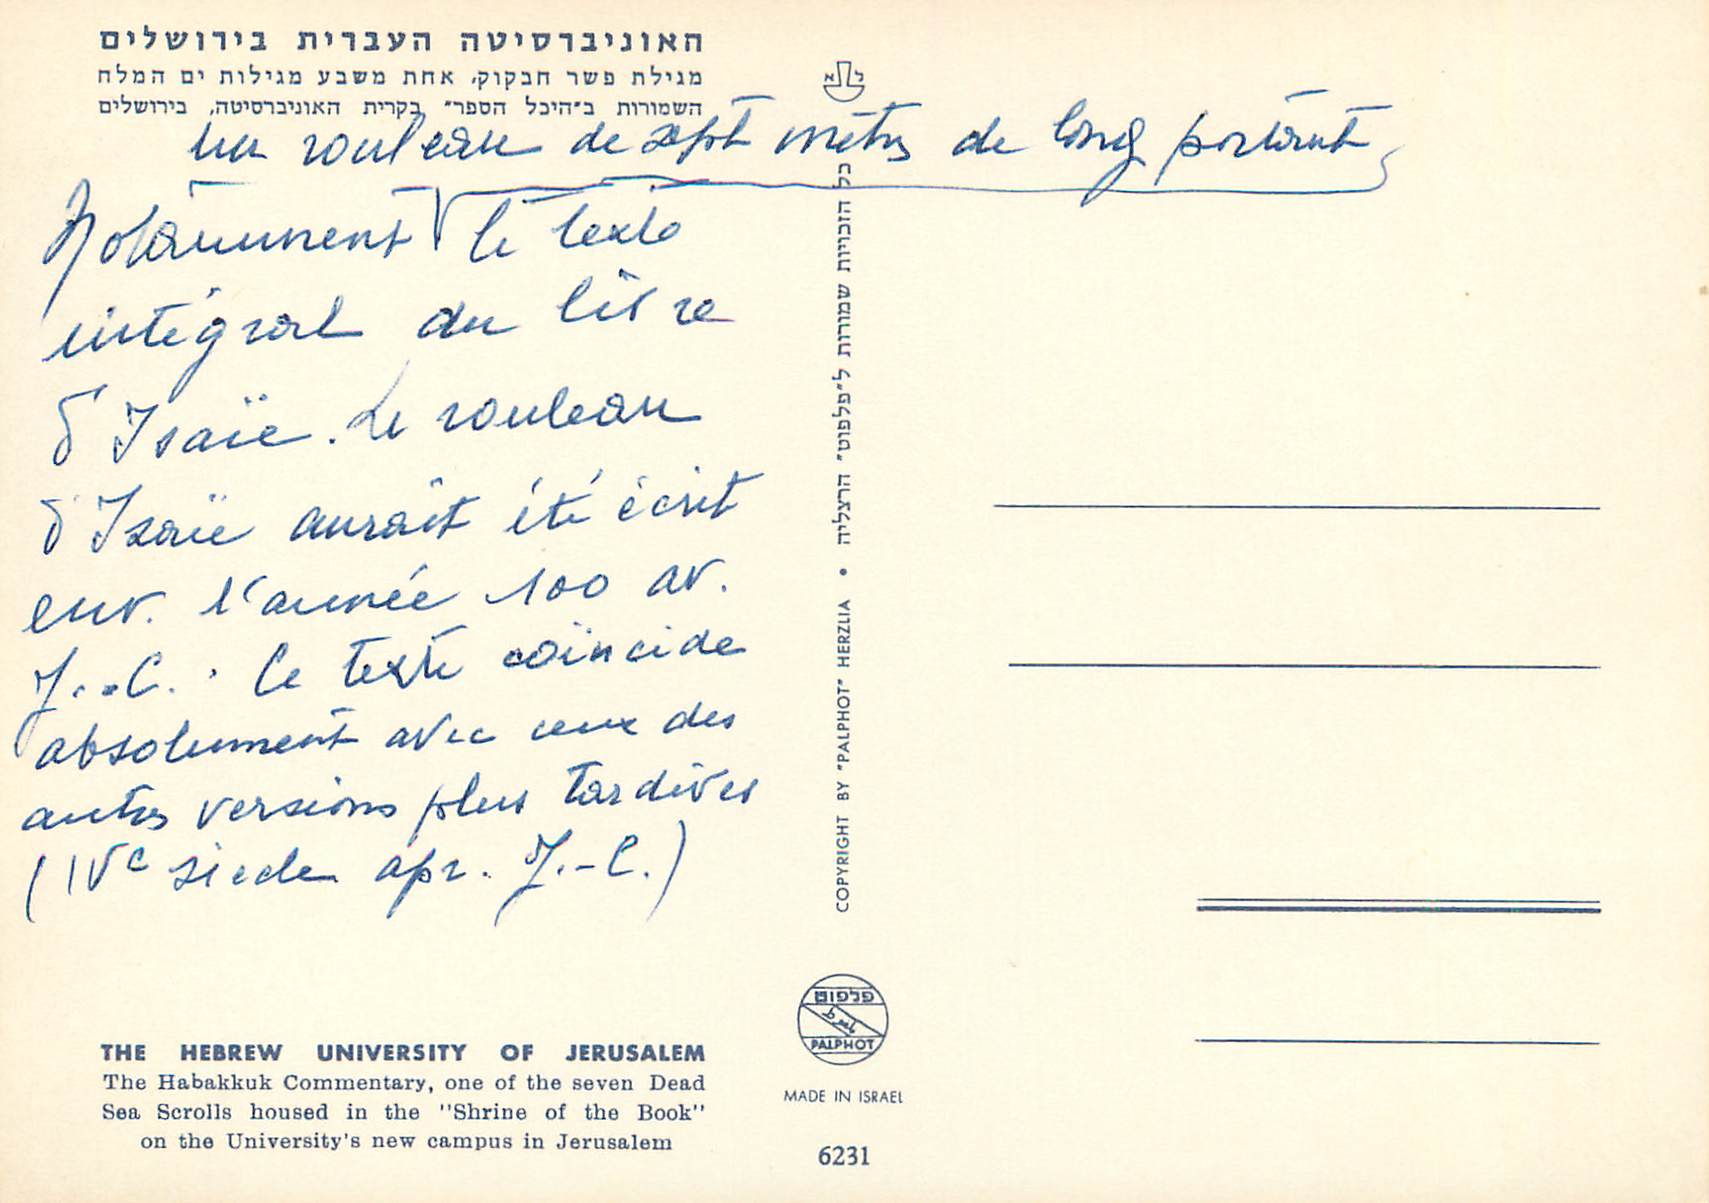 האוניברסיטה העברית בירושלים
מגילת פשר חבקוק, אחת משבע מגילות ים המלח
השמורות ב"היכל הספר" בקרית האוניברסיטה, בירושלים
un rouleau de sept mètres de long portant
Notamment le texte
intégral du livre
d'Isaïe. Le rouleau
d'Isaïe aurait été écrit
env. l'année 100 av.
J.-C. Ce texte coïncide
absolument avec ceux des
autres versions plus tardives
(IVe siècle apr. J.-C.)
THE HEBREW UNIVERSITY OF JERUSALEM
The Habakkuk Commentary, one of the seven Dead
Sea Scrolls housed in the "Shrine of the Book"
on the University's new campus in Jerusalem
כל הזכויות שמורות ל"פלפוט" הרצליה • COPYRIGHT BY "PALPHOT" HERZLIA
פלפוט
PALPHOT
MADE IN ISRAEL
6231